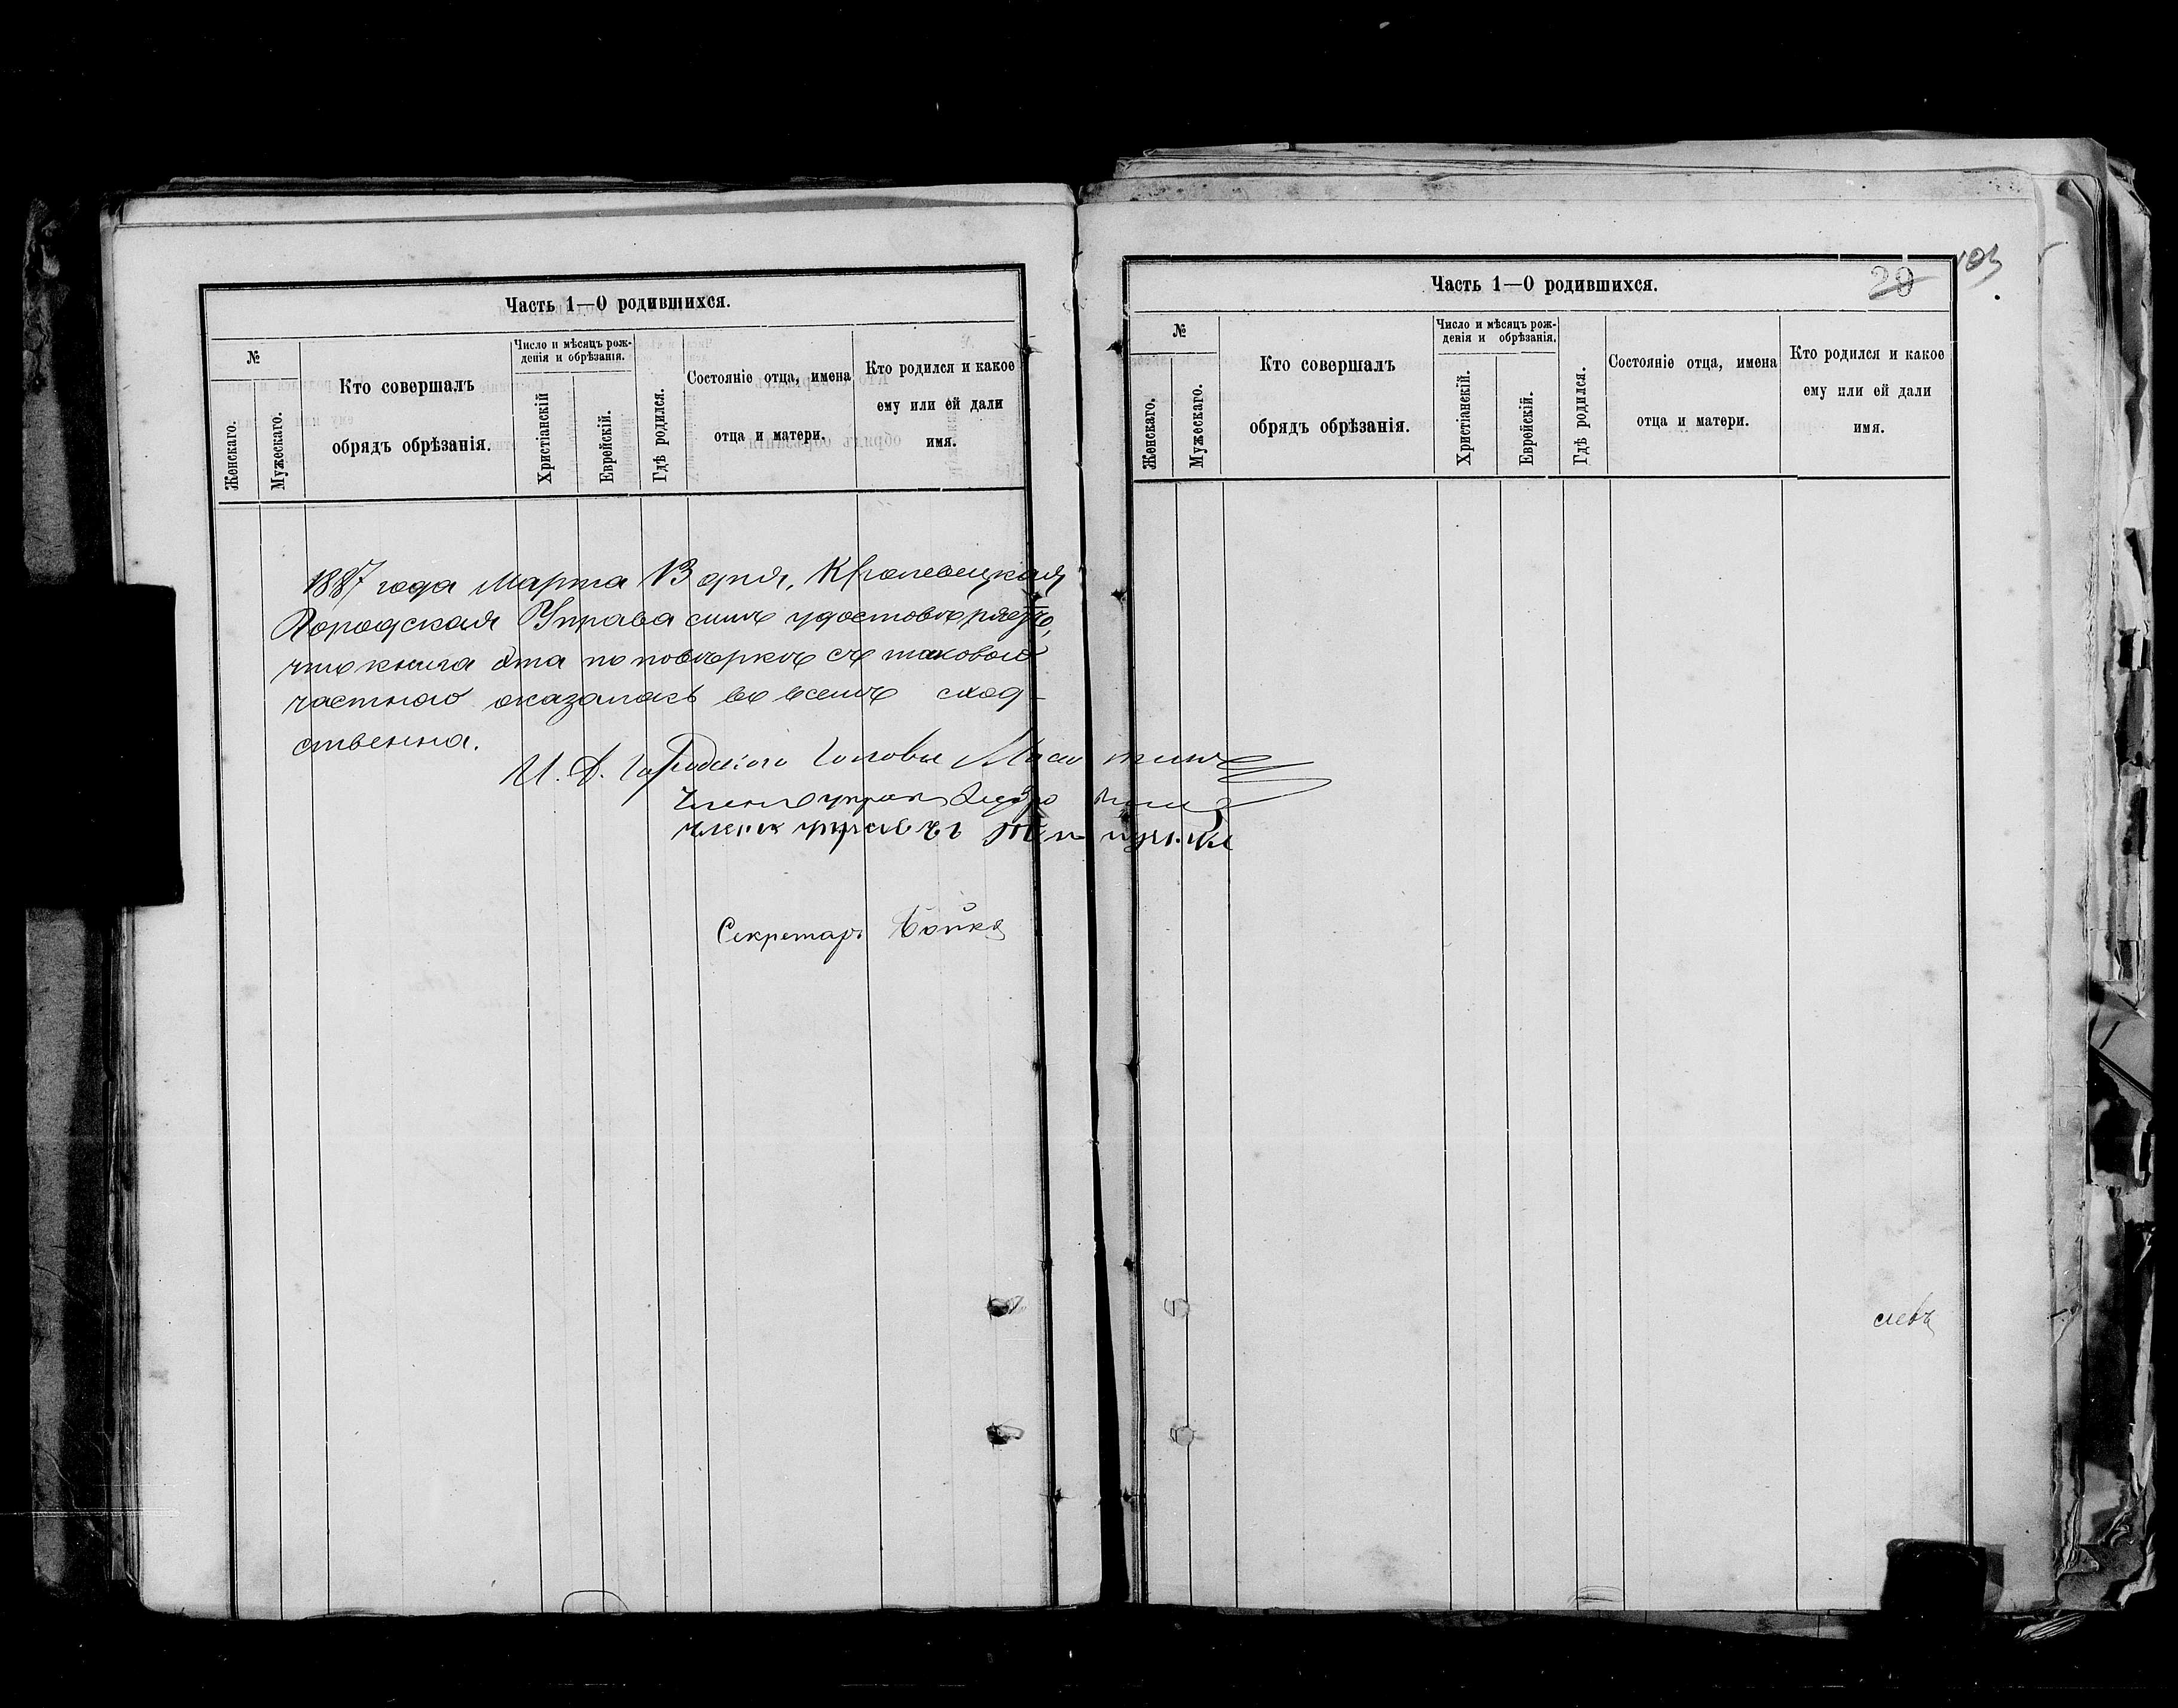 Часть 1—О родившихся.
№
Женскаго.
Мужескаго.
Кто совершалъ
обрядъ обрѣзанія.
Число и мѣсяцъ рож-
денія и обрѣзанія.
Христіанскій
Еврейскій.
Гдѣ родился.
Состояніе отца, имена
отца и матери.
Кто родился и какое
ему или ей дали
имя.
1887 года Марта 13 дня, Кролевецкая
Городская Управа симъ удостовѣряетъ,
что книга эта по повѣркѣ съ таковою
частною оказалась во всемъ сход-
ственна.
И. Д. Городскаго Головы
Членъ управы
Членъ управы
Секретарь Бойко
Часть 1—О родившихся.
29
103
№
Женскаго.
Мужескаго.
Кто совершалъ
обрядъ обрѣзанія.
Число и мѣсяцъ рож-
денія и обрѣзанія.
Христіанскій.
Еврейскій.
Гдѣ родился.
Состояніе отца, имена
отца и матери.
Кто родился и какое
ему или ей дали
имя.